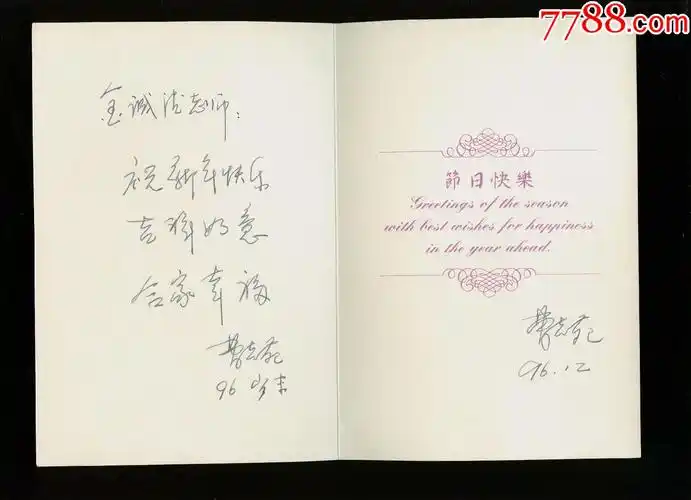 7788.com
祝新年快乐
吉祥如意
合家幸福
96 岁末
節日快樂
Greetings of the season
with best wishes for happiness
in the year ahead.
96.12